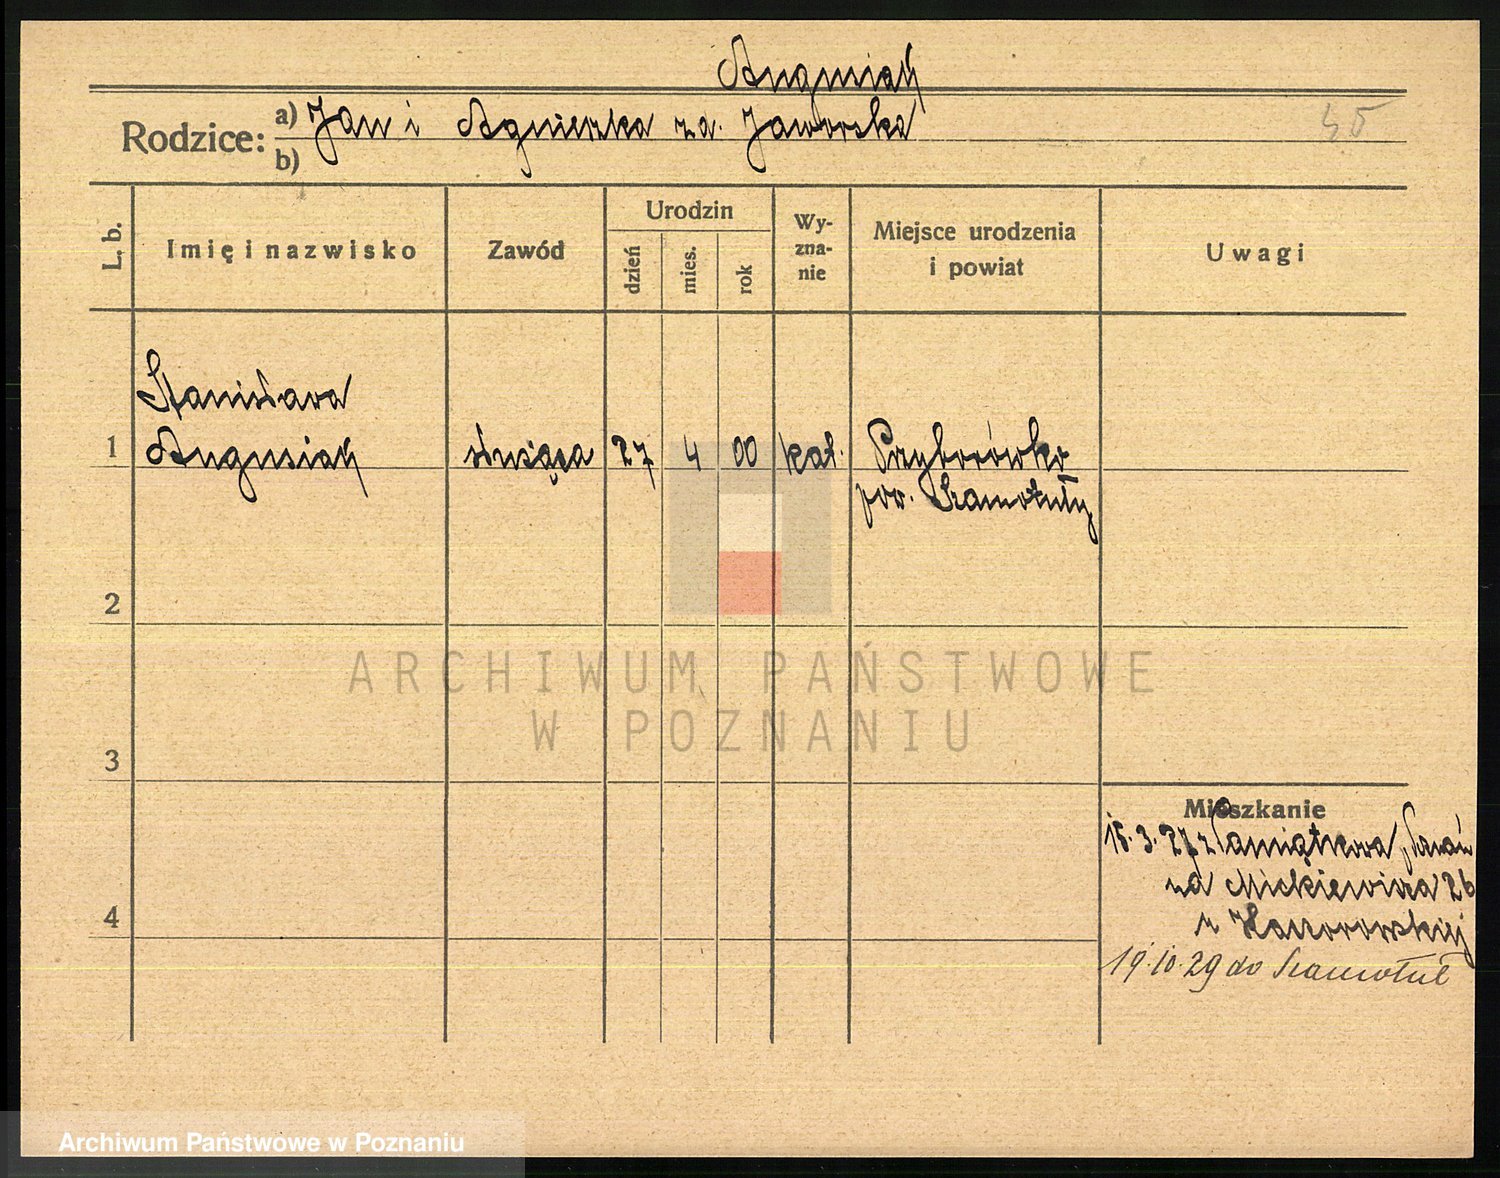 Angusiak
Rodzice: a) Jan i Agnieszka za. Jaworska
b)
45
L. b.
Imię i nazwisko
Zawód
Urodzin
dzień
mies.
rok
Wy-
zna-
nie
Miejsce urodzenia
i powiat
Uwagi
Stanisława
1 Angusiak służąca 27 4 00 kat. Przyborówko
pow. Szamotuły
2
3
4
Mieszkanie
15.3.27 z Pamiątkowa,
na Mickiewicza 26
19.10.29 do Szamotuł
ARCHIWUM PAŃSTWOWE
W POZNANIU
Archiwum Państwowe w Poznaniu